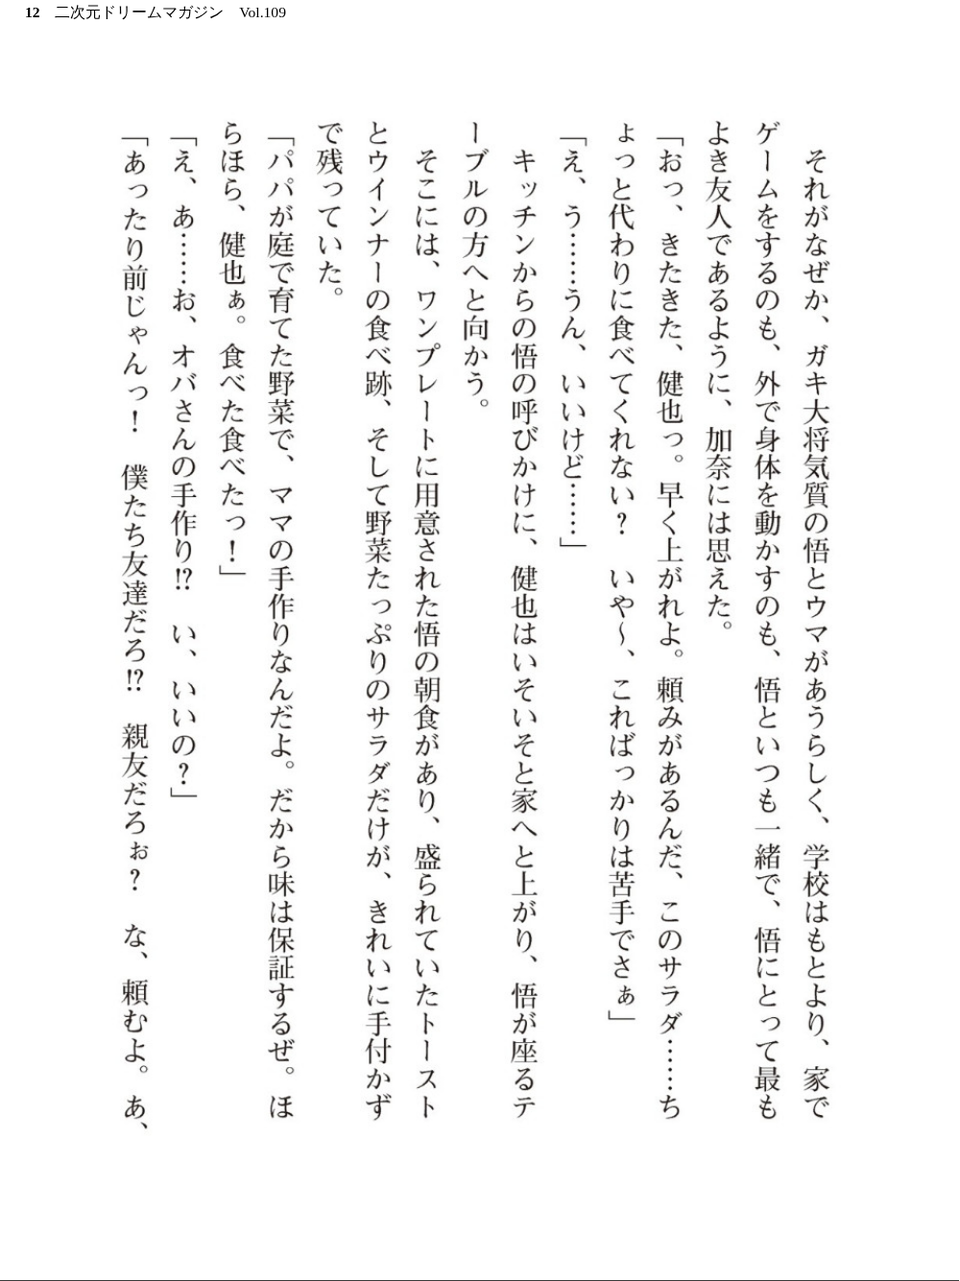 12 二次元ドリームマガジン Vol.109
　それがなぜか、ガキ大将気質の悟とウマがあうらしく、学校はもとより、家で
ゲームをするのも、外で身体を動かすのも、悟といつも一緒で、悟にとって最も
よき友人であるように、加奈には思えた。
「おっ、きたきた、健也っ。早く上がれよ。頼みがあるんだ、このサラダ……ち
ょっと代わりに食べてくれない？　いや～、こればっかりは苦手でさぁ」
「え、う……うん、いいけど……」
　キッチンからの悟の呼びかけに、健也はいそいそと家へと上がり、悟が座るテ
ーブルの方へと向かう。
　そこには、ワンプレートに用意された悟の朝食があり、盛られていたトースト
とウインナーの食べ跡、そして野菜たっぷりのサラダだけが、きれいに手付かず
で残っていた。
「パパが庭で育てた野菜で、ママの手作りなんだよ。だから味は保証するぜ。ほ
らほら、健也ぁ。食べた食べたっ！」
「え、あ……お、オバさんの手作り⁉　い、いいの？」
「あったり前じゃんっ！　僕たち友達だろ⁉　親友だろぉ？　な、頼むよ。あ、